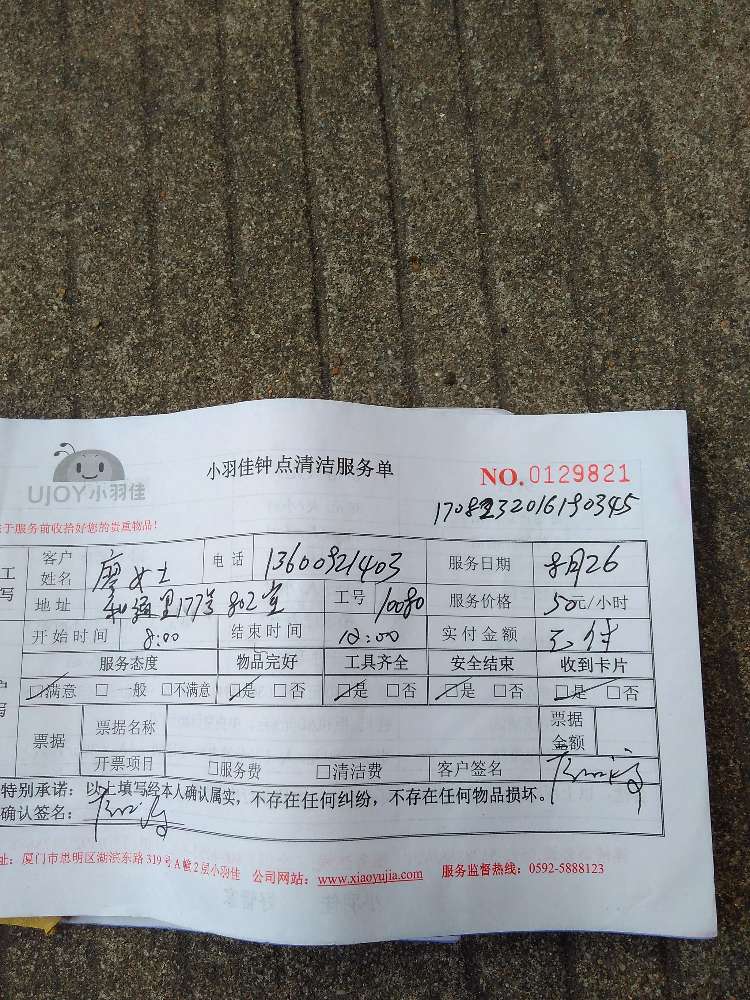 UJOY小羽佳
小羽佳钟点清洁服务单
NO.0129821
于服务前收拾好您的贵重物品!
客户姓名 廖女士 电话 13600921403 服务日期 8月26
地址 和通里177号802室 工号 10080 服务价格 50元/小时
开始时间 8:00 结束时间 12:00 实付金额 已付
服务态度 物品完好 工具齐全 安全结束 收到卡片
□满意 □一般 □不满意 □是 □否 □是 □否 □是 □否 □是 □否
票据 票据名称 票据金额
开票项目 □服务费 □清洁费 客户签名
特别承诺：以上填写经本人确认属实，不存在任何纠纷，不存在任何物品损坏。
确认签名：
址：厦门市思明区湖滨东路319号A幢2层小羽佳 公司网站：www.xiaoyujia.com 服务监督热线：0592-5888123